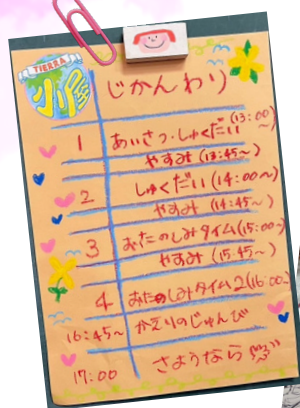 TIERRA
小屋
じかんわり
1 あいさつ・しゅくだい(13:00~)
やすみ(13:45~)
2 しゅくだい(14:00~)
やすみ(14:45~)
3 おたのしみタイム(15:00~)
やすみ(15:45~)
4 おたのしみタイム2(16:00~)
16:45~ かえりのじゅんび
17:00 さようなら